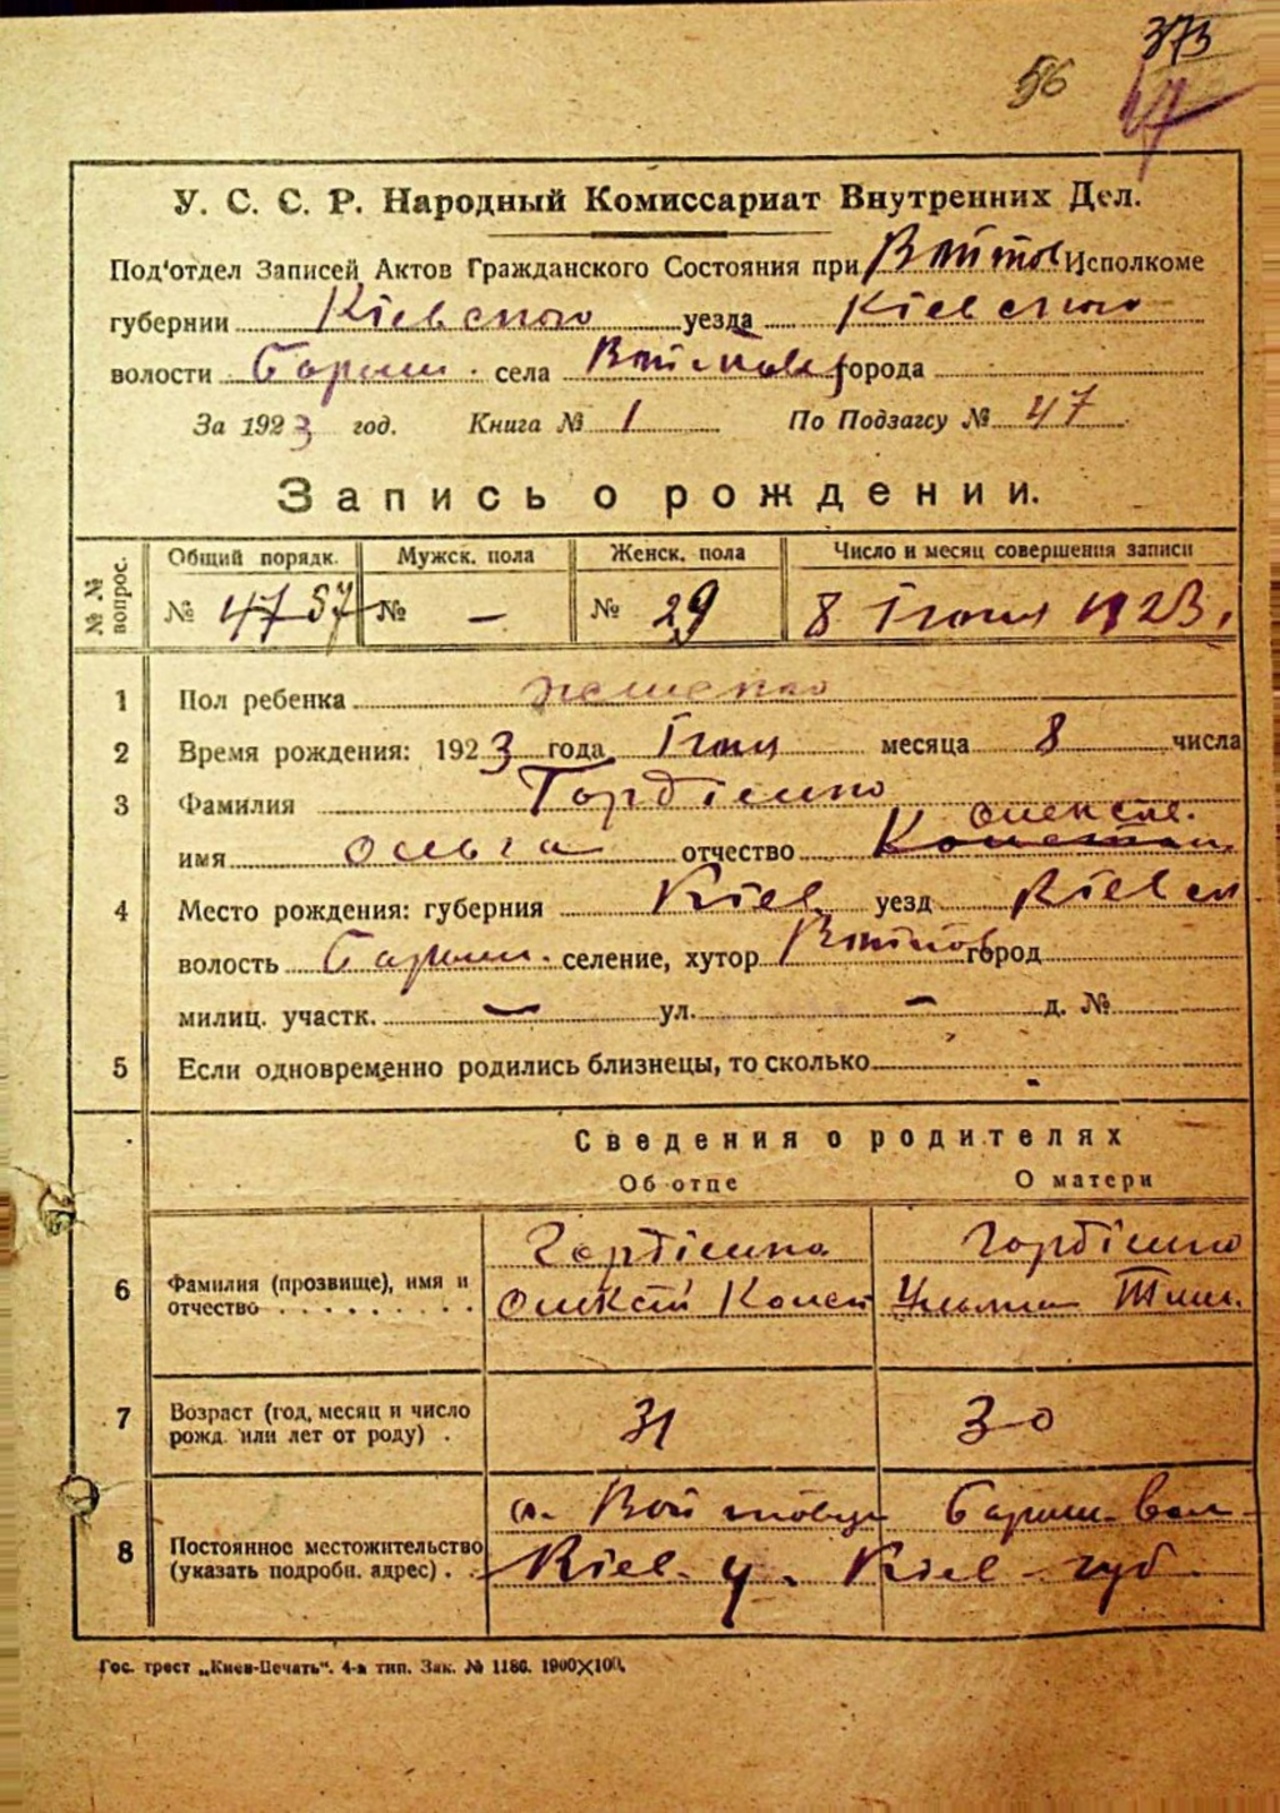 373
56
47
У. С. С. Р. Народный Комиссариат Внутренних Дел.
Под'отдел Записей Актов Гражданского Состояния при Войтов Исполкоме
губернии Кіевского уезда Кіевского
волости Бариш. села Войтовц города
За 1923 год. Книга № 1 По Подзагсу № 47
Запись о рождении.
№ № вопрос. Общий порядк. Мужск. пола Женск. пола Число и месяц совершения записи
№ 47 57 № — № 29 8 Іюня 1923.
1 Пол ребенка женско
2 Время рождения: 1923 года Іюня месяца 8 числа
3 Фамилия Гордіенко
Олексіе.
имя Ольга отчество Констан
4 Место рождения: губерния Кіев. уезд Кіевск
волость Бариш. селение, хутор Войтов город
милиц. участк. — ул. — д. №
5 Если одновременно родились близнецы, то сколько -
Сведения о родителях
Об отце О матери
Гордіенко Гордіенко
6 Фамилия (прозвище), имя и отчество Олексій Конст Ульяна Тим.
7 Возраст (год, месяц и число рожд. или лет от роду) . 31 30
с. Войтовци Бариш. вол.
8 Постоянное местожительство (указать подробн. адрес) . . Кіев. у. Кіев. губ.
Гос. трест „Киев-Печать". 4-я тип. Зак. № 1186. 1900×100.